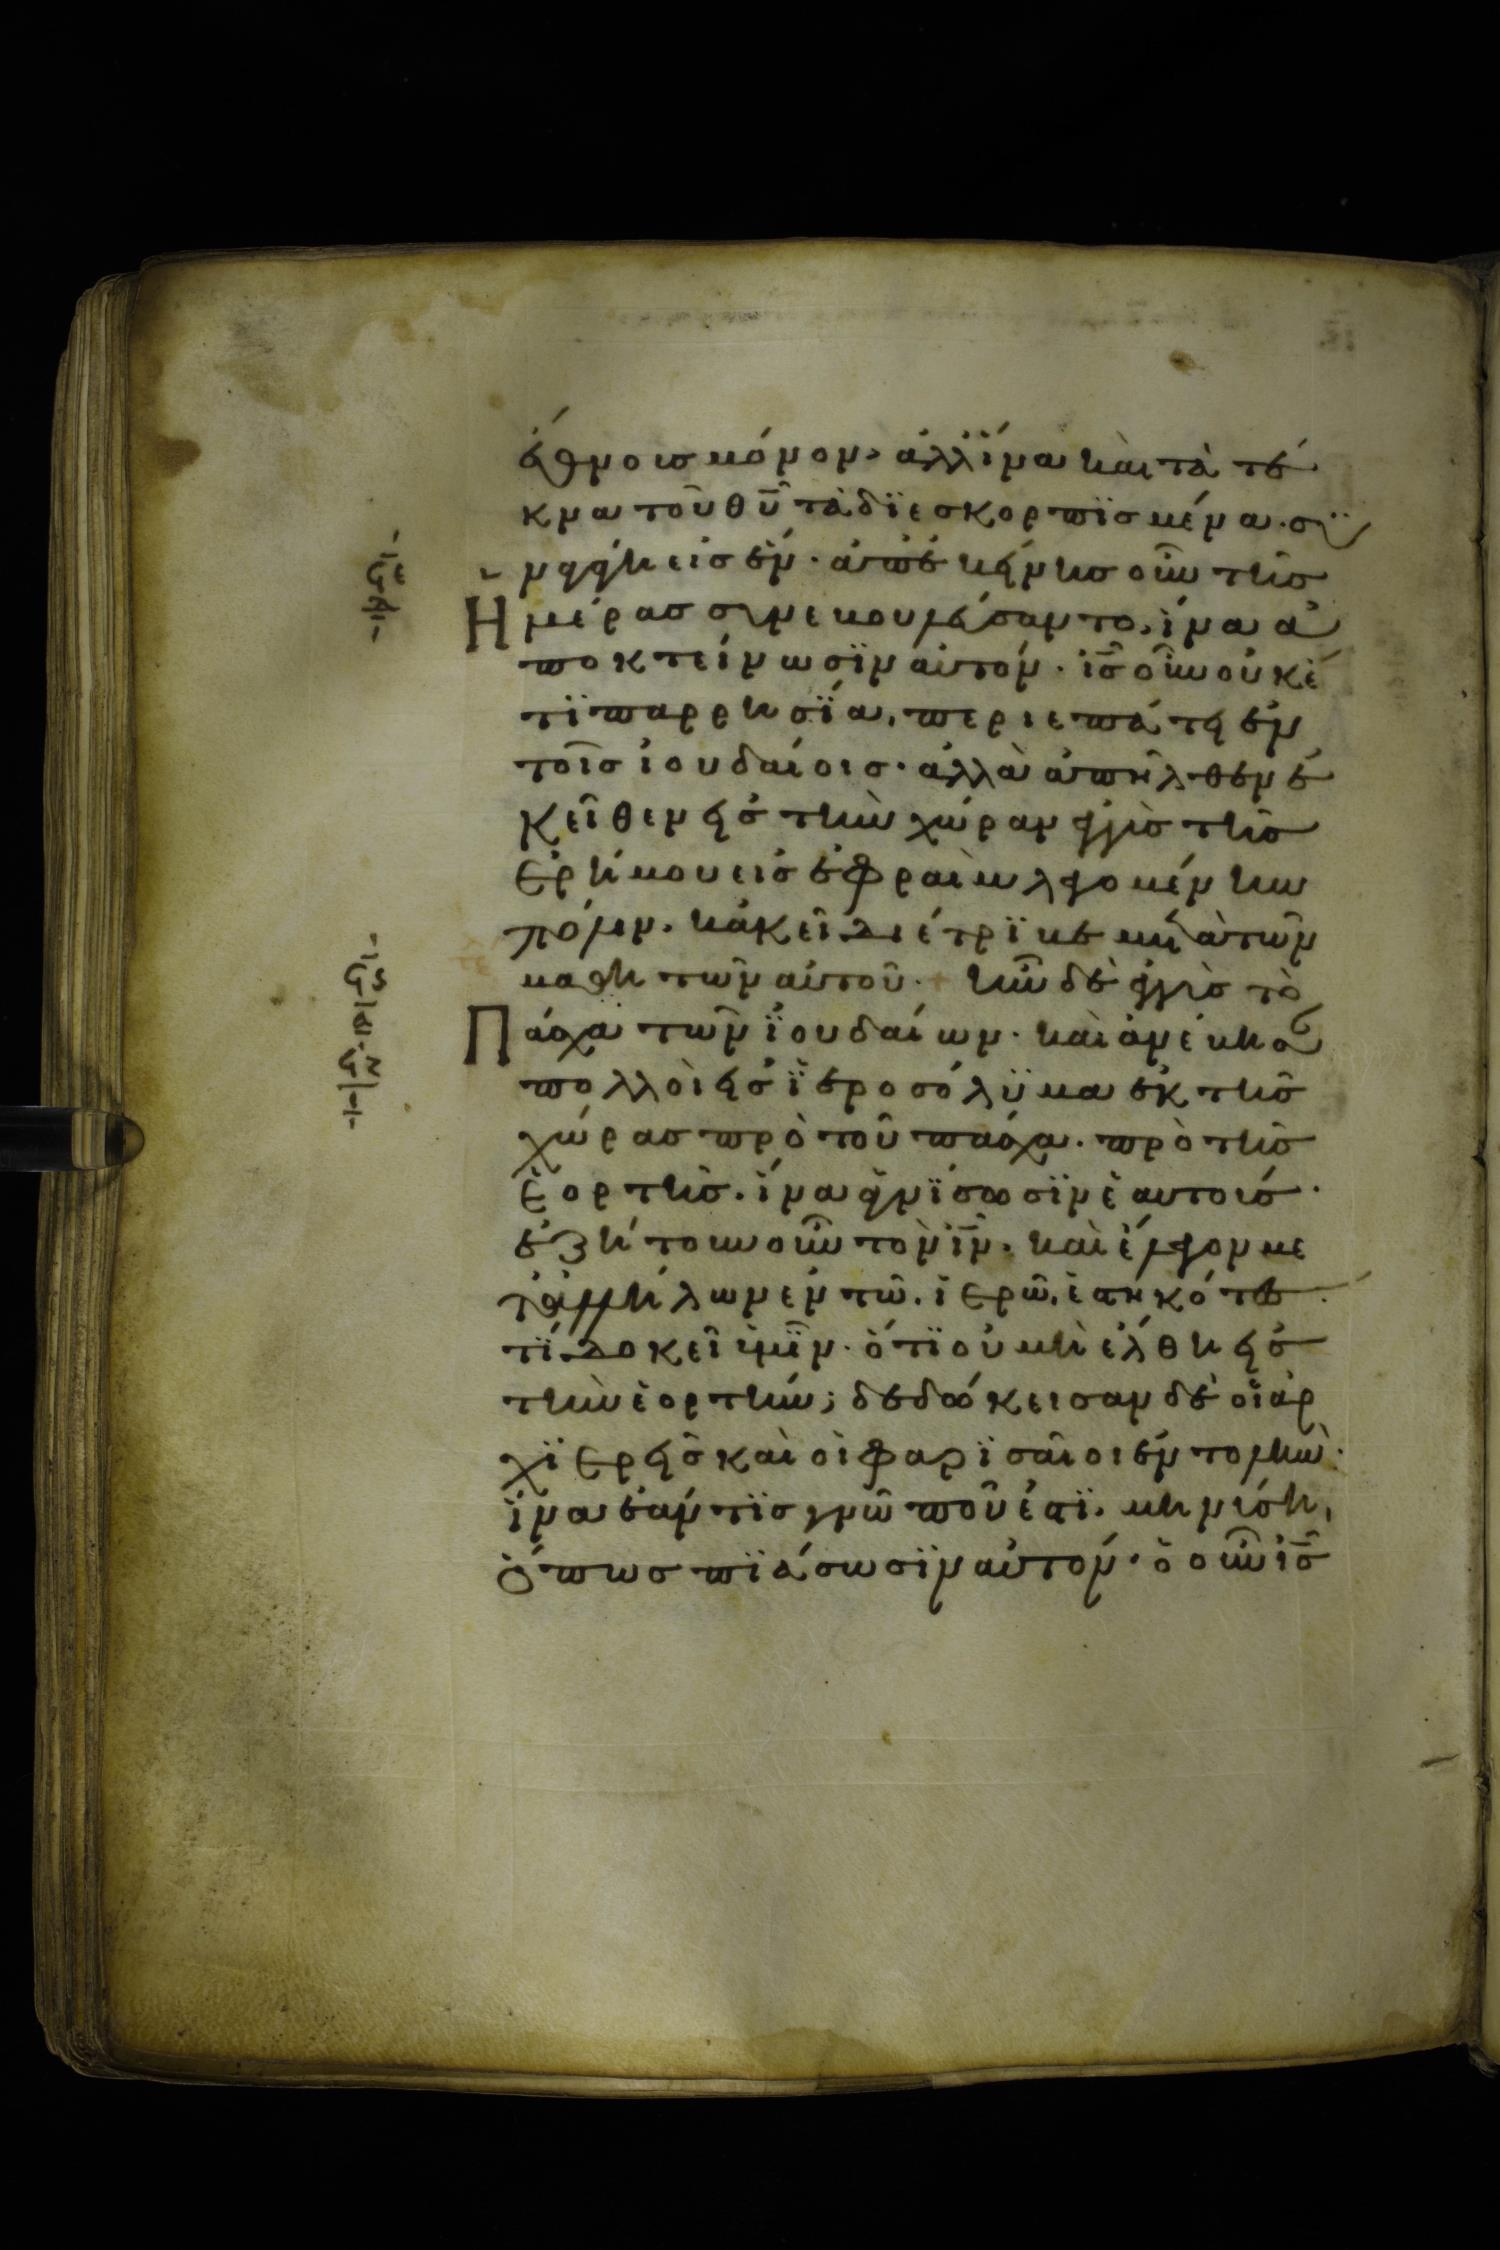 ἔθνουσ μόνον· ἀλλ ἵνα καὶ τὰ τέ
κνα τοῦ θ̅υ̅ τὰ διεσκορπϊσμένα· συ
ναχθῆ εἰσ ἕν· ἀπ ἐκείνησ οὖν τῆσ
Ημέρασ συνεβουλεύσαντο, ἵνα ἀ
ποκτείνωσϊν αὐτόν· ι̅σ̅ οὖν οὐκέ
τϊ παρρησΐα, περιεπάτει ἐν
τοῖσ ἰουδαίοισ· ἀλλὰ ἀπῆλθεν ἐ
κεῖθεν εἰσ τὴν χώραν ἐγγὺσ τῆσ
ἐρήμου εἰσ ἐφραὶμ λεγομένην
πόλιν. κἀκεῖ διέτρϊβε μετὰ τῶν
μαθητῶν αὐτοῦ· ἦν δὲ ἐγγὺσ τὸ
Πάσχα τῶν ϊουδαίων· καὶ ἀνέβησαν
πολλοὶ εἰσ ϊεροσόλϋμα ἐκ τῆσ
χώρασ πρὸ τοῦ πάσχα. πρὸ τῆσ
ἑορτῆσ. ἵνα ἁγνϊσωσϊν ἑαυτοισ·
ἐζήτουν οὖν τὸν ι̅ν̅. καὶ ἔλεγον με
τ ἀλλήλων ἐν τῶ. ἱερῶ, ἑστηκότεσ·
τί δοκεῖ ὑμῖν· ὅτϊ οὐ μὴ ἔλθη εἰσ
τὴν ἑορτήν; δεδώκεισαν δὲ οἱ ἀρ
χϊερεῖσ καὶ οἱ φαρϊσαῖοι ἐντολὴν·
ἵνα ἐάν τϊσ γνῶ ποῦ ἐστϊ. μηνύση,
ὅπωσ πϊάσωσϊν αὐτόν· ὁ οὖν ι̅σ̅